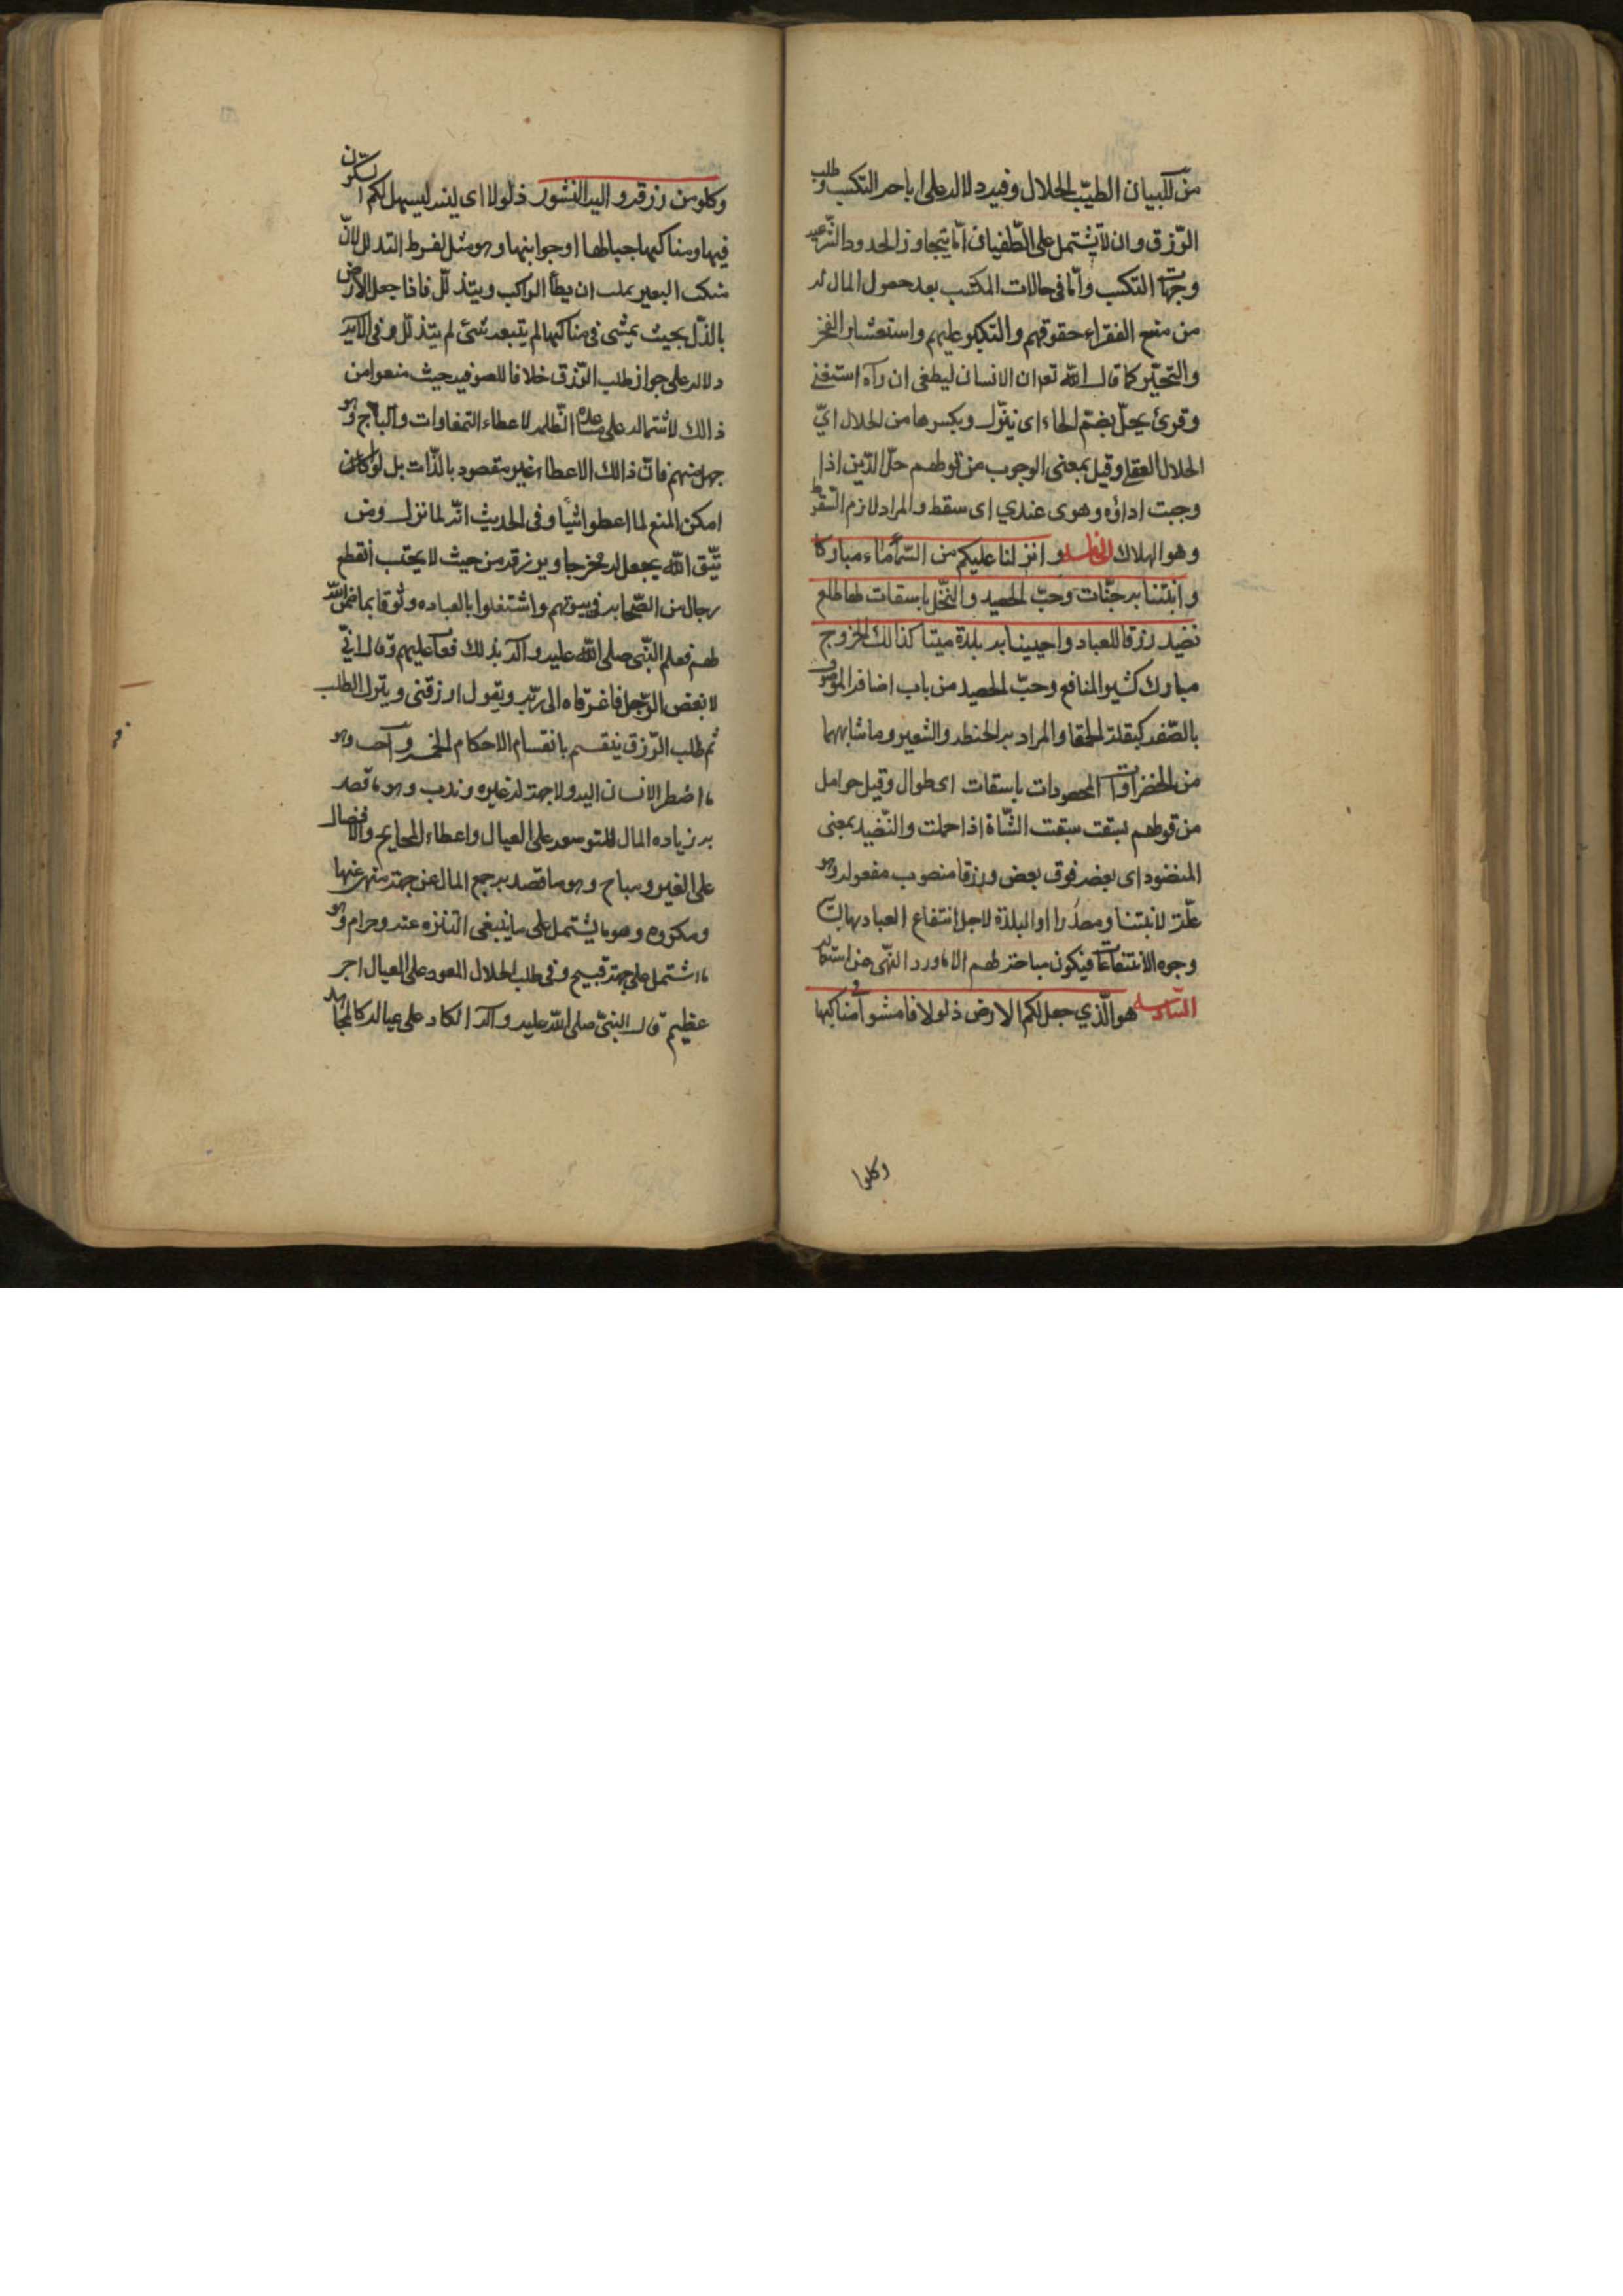 من للبيان الطيّب الحلال وفيه دلاله على اباحه التكسب وطلب
الرّزق وان لا يشتمل على الطّغيان امّا بتجاوز الحدود الشّرعيه
وجهات التكسب وامّا فى حالات المكتسب بعد حصول المال له
من منع الفقراء حقوقهم والتكبر عليهم واستعشار الفخر
والتجبّر كما قال الله تع ان الانسان ليطغى ان رآه استغنى
وقرئ يحلّ بضمّ الحاء اى ينزّل وبكسرها من الحلال اىّ
الحلال العقلى وقيل بمعنى الوجوب من قولهم حلّ الدّين اذا
وجبت اداؤه وهوى عندي اى سقط والمراد لازم السّقوط
وهو الهلاك الخامسه وانزلنا عليكم من السّماء ماء مباركا
وانبتنا به جنّات وحبّ الحصيد والنّخل باسقات لها طلع
نضيد رزقا للعباد واحيينا به بلدة ميتا كذالك الخروج
مبارك كثير المنافع وحبّ الحصيد من باب اضافه الموصوف
بالصّفه كبقلة الحمقا والمراد به الحنطه والشعير وما شابههما
من الخضراوات المحصودات باسقات اى طوال وقيل حوامل
من قولهم بسقت الشّاة اذا حملت والنّضيد بمعنى
المنضود اى بعضه فوق بعض ورزقا منصوب مفعول له وهو
علّة لانبتنا ومصدرا او البلدة لاجل انتفاع العباد بها
وجوه الانتفاعات فيكون مباحة لهم الا ما ورد النّهى عن استعماله
السّادسه هو الّذي جعل لكم الارض ذلولا فامشوا فى مناكبها
وكلوا
وكلو من رزقه واليه النشور ذلولا اى لينه ليسهل لكم السّكون
فيها ومناكبها جبالها او جوانبها وهو مثل لفرط التذلل لانّ
منكب البعير ان يطأ الراكب ويتذلّل فاذا جعل الارض
بالذّل بحيث يمشى فى مناكبها لم يتبعه شئ لم يتذلّل وفى الايه
دلاله على جواز طلب الرّزق خلافا للصوفيه حيث منعوا من
ذالك لاشتماله على مساعده الظّلمه لاعطاء التمغاوات والباج وهو
جهل منهم فانّ ذالك الاعطاء غير مقصود بالذّات بل لو كان
امكن المنع لما اعطوا شيأ وفى الحديث انّه لما نزل ومن
يتّق الله يجعل له مخرجا ويرزقه من حيث لا يحتسب انقطع
رجال من الصّحابه فى بيوتهم واشتغلوا بالعباده وثوقا بما ضمن الله
لهم فعلم النّبى صلى الله عليه وآله بذلك فعاب عليهم وقال انّي
لابغض الرّجل فاغرا فاه الى ربّه ويقول ارزقنى ويترك الطلب
ثم طلب الرّزق ينقسم بانقسام الاحكام الخمسه واجب وهو
ما اضطر الانسان اليه ولا جهة له غيره وندب وهو ما قصد
به زياده المال للتوسعه على العيال واعطاء المحاويج والافضال
على الغير ومباح وهو ما قصد به جمع المال عن جهة منهى عنها
ومكروه وهو ما يشتمل على ما ينبغى التنزه عنه وحرام وهو
ما اشتمل على جهة قبيح وفى طلب الحلال العود على العيال اجر
عظيم قال النبىّ صلى الله عليه وآله الكاد على عياله كالمجاهد